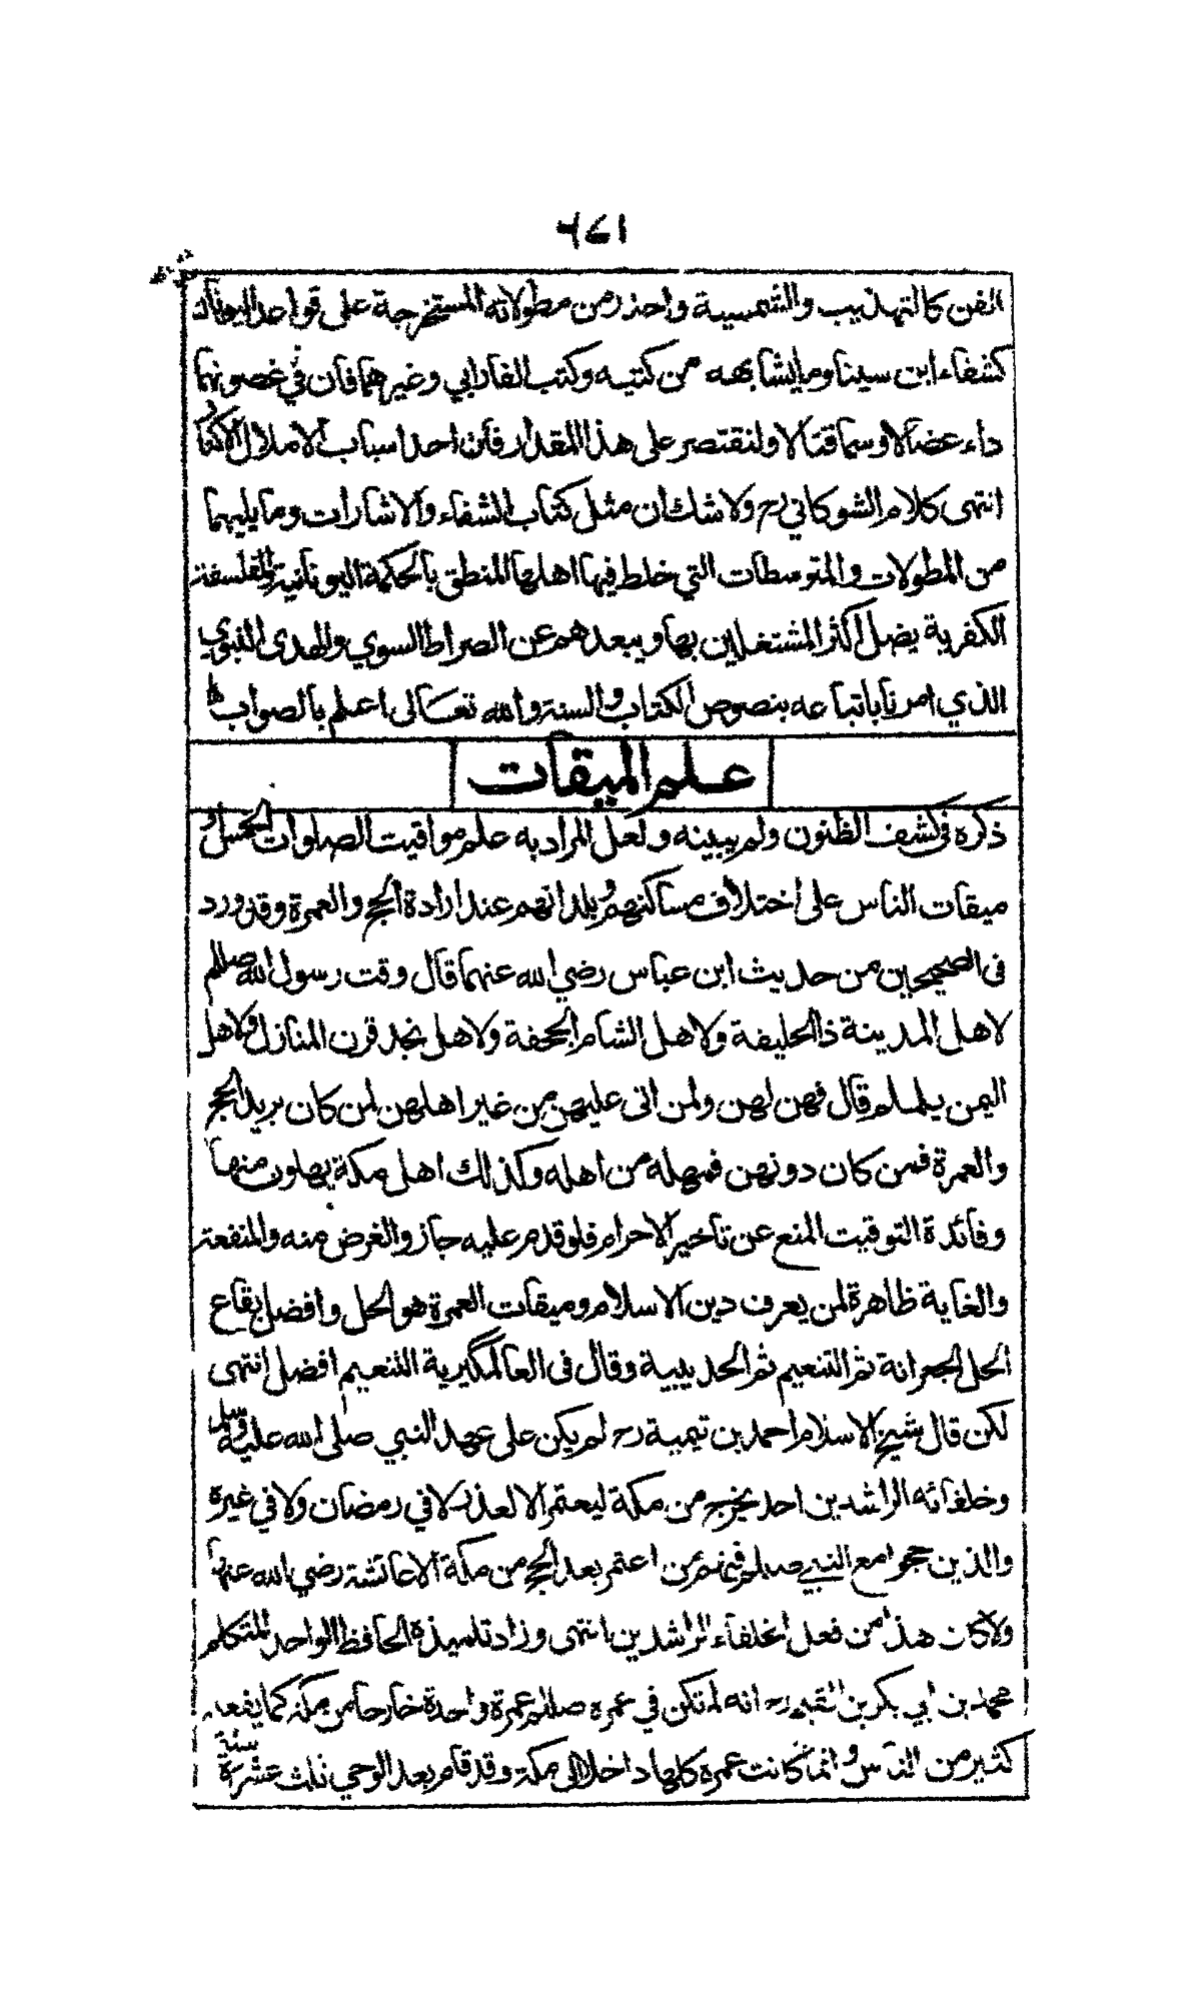 ٦٤١
الفن كالتهذيب والشمسية واحذر من مطولاته المستخرجة على قواعد اليونان
كشفاء ابن سينا وما يشابهه من كتبه وكتب الفارابي وغيرهما فان في غصونها
داء عضالا وسما قتالا ولنقتصر على هذا المقدار فان احد اسباب الاملال الاكثار
انتهى كلام الشوكاني رح ولا شك ان مثل كتاب الشفاء والاشارات وما يليهما
من المطولات والمتوسطات التي خلط فيها اهلها المنطق بالحكمة اليونانية والفلسفة
الكفرية يضل اكثر المشتغلين بها ويبعدهم عن الصراط السوي والهدى النبوي
الذي امرنا باتباعه بنصوص الكتاب والسنة والله تعالى اعلم بالصواب
علم الميقات
ذكره في كشف الظنون ولم يبينه ولعل المراد به علم مواقيت الصلوات الخمس او
ميقات الناس على اختلاف مساكنهم وبلدانهم عند ارادة الحج والعمرة وقد ورد
فى الصحيحين من حديث ابن عباس رضي الله عنهما قال وقت رسول الله صللم
لاهل المدينة ذا الحليفة ولاهل الشام الجحفة ولاهل نجد قرن المنازل ولاهل
اليمن يلملم قال فهن لهن ولمن اتى عليهن من غير اهلهن لمن كان يريد الحج
والعمرة فمن كان دونهن فمهله من اهله وكذلك اهل مكة يهلون منها
وفائدة التوقيت المنع عن تاخير الاحرام فلو قدم عليه جاز والغرض منه والمنفعة
والغاية ظاهرة لمن يعرف دين الاسلام وميقات العمرة هو الحل وافضل بقاع
الحل الجعرانة ثم التنعيم ثم الحديبية وقال فى العالمگيرية التنعيم افضل انتهى
لكن قال شيخ الاسلام احمد بن تيمية رح لم يكن على عهد النبي صلى الله عليه وسلم
وخلفائه الراشدين احد يخرج من مكة ليعتمر الا لعذر لا في رمضان ولا في غيره
والذين حجوا مع النبي صللم فيهم من اعتمر بعد الحج من مكة الا عائشة رضي الله عنها
ولا كان هذا من فعل الخلفاء الراشدين انتهى وزاد تلميذه الحافظ الواحد المتكلم
محمد بن ابي بكر بن القيم رح انه لم تكن في عمره صللم عمرة واحدة خارجا من مكة كما يفعله
كثير من الناس وانما كانت عمره كلها داخلا الى مكة وقد قام بعد الوحي ثلث عشرة سنة